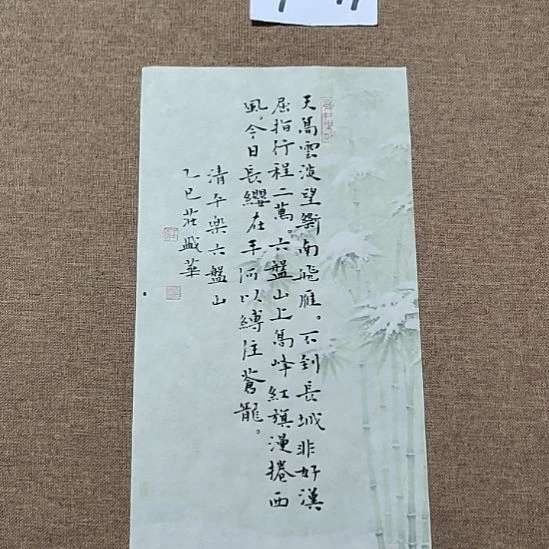 天高雲淡望斷南飛雁。不到長城非好漢
屈指行程二萬六盤山上高峰紅旗漫捲西
風。今日長纓在手何以縛住蒼龍。
清平樂六盤山
乙巳莊盛華